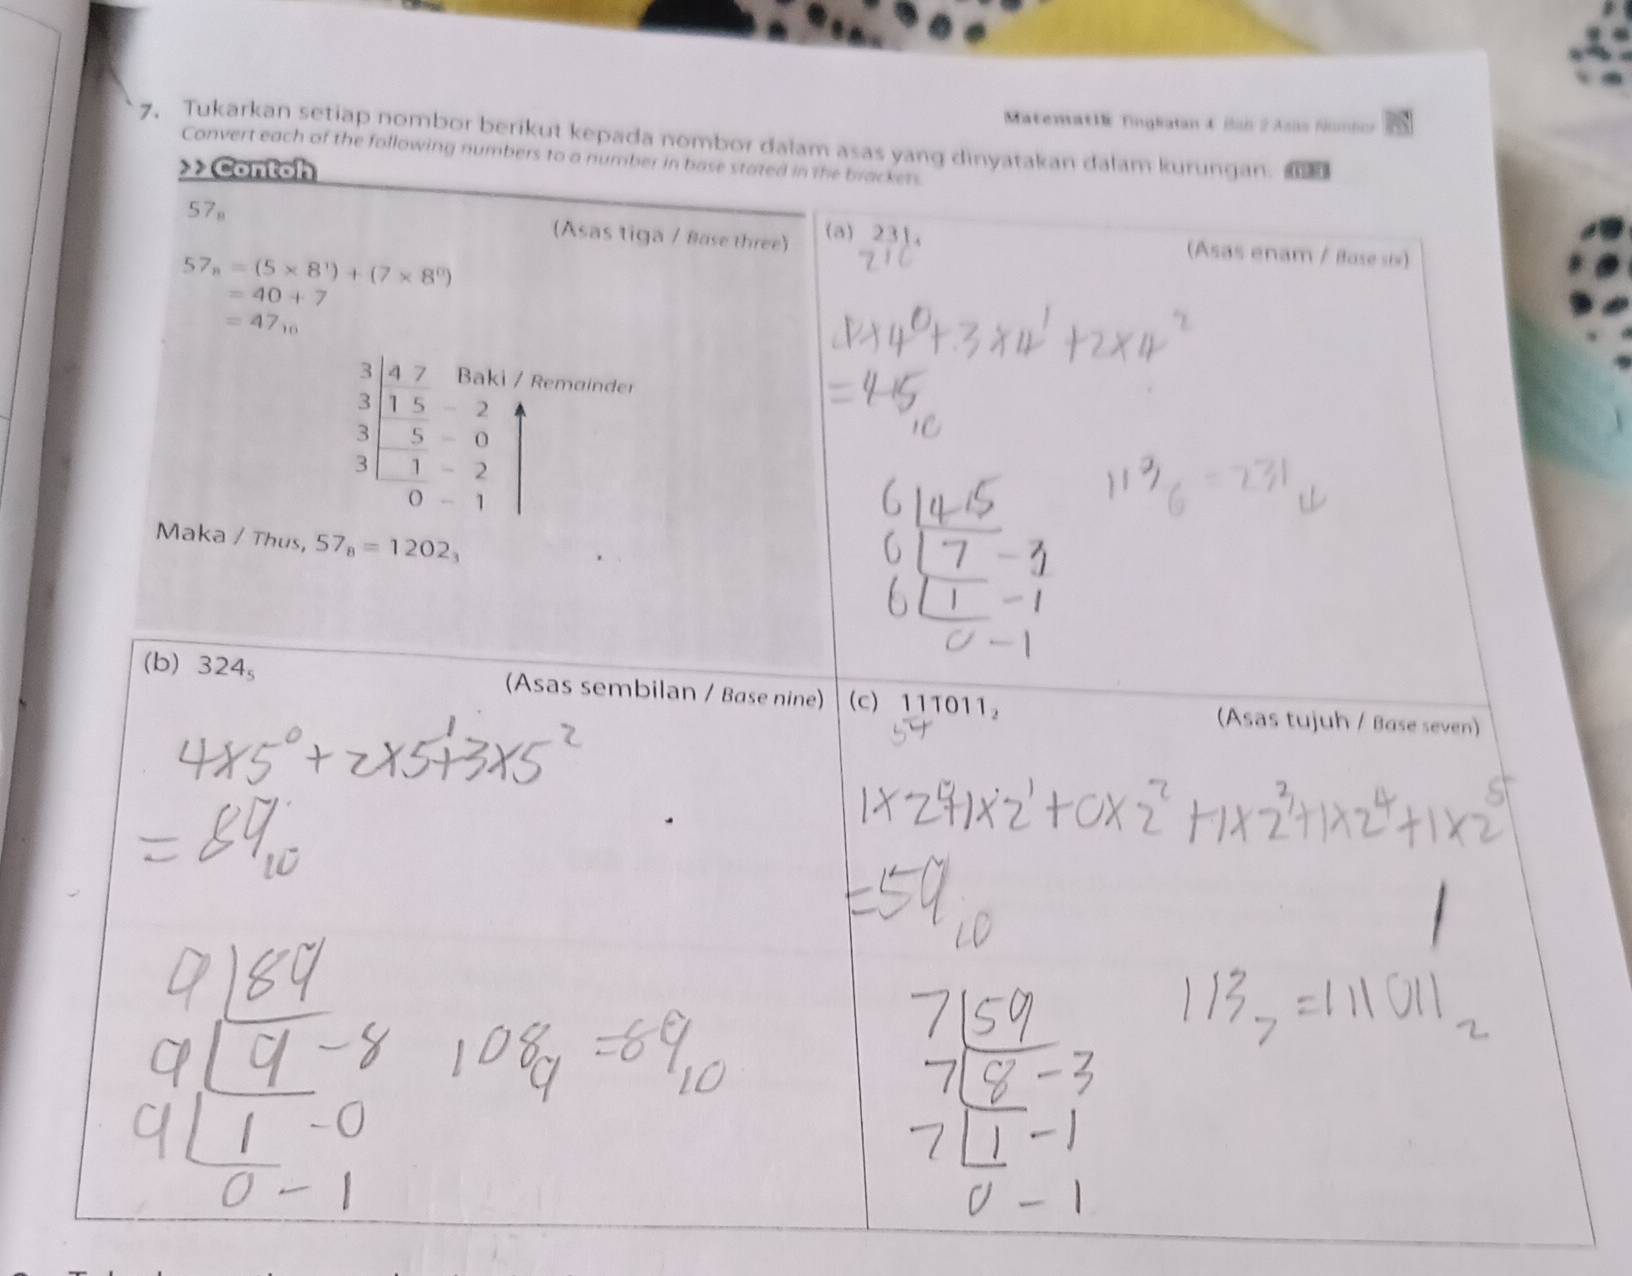 Matematik Tingkatan 4 Bab 2 Asas Nombor
7. Tukarkan setiap nombor berikut kepada nombor dalam asas yang dinyatakan dalam kurungan.
Convert each of the following numbers to a number in base stated in the brackets.
>> Contoh
57₈ (Asas tiga / Base three)
57₈ = (5 × 8¹) + (7 × 8⁰)
= 40 + 7
= 47₁₀
3 | 4 7 Baki / Remainder
3 | 1 5 - 2
3 | 5 - 0
3 | 1 - 2
0 - 1
Maka / Thus, 57₈ = 1202₃
(a) 231₄ (Asas enam / Base six)
1×4⁰+3×4¹+2×4²
=45₁₀
6|45
6|7-3
6|1-1
0-1
113₆=231₄
(b) 324₅ (Asas sembilan / Base nine)
4×5⁰+2×5¹+3×5²
=89₁₀
9|89
9|9-8
9|1-0
0-1
108₉=89₁₀
(c) 111011₂ (Asas tujuh / Base seven)
54
1×2⁰+1×2¹+0×2²+1×2³+1×2⁴+1×2⁵
=59₁₀
7|59
7|8-3
7|1-1
0-1
113₇=111011₂